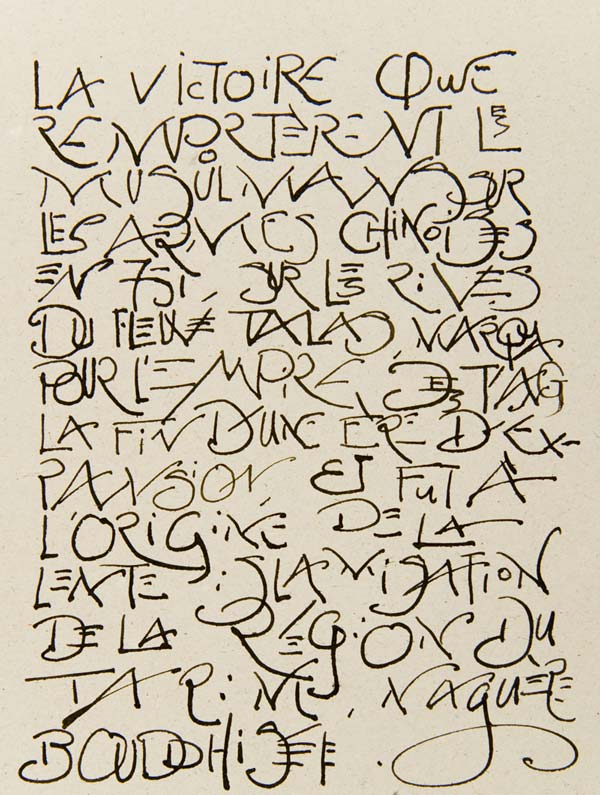 LA VICTOIRE QUE
REMPORTÈRENT LES
MUSULMANS SUR
LES ARMÉES CHINOISES
EN 751, SUR LES RIVES
DU FLEUVE TALAS, MARQUA
POUR L'EMPIRE DES T'ANG
LA FIN D'UNE ÈRE D'EX-
PANSION, ET FUT À
L'ORIGINE DE LA
LENTE ISLAMISATION
DE LA RÉGION DU
TARIM, NAGUÈRE
BOUDDHISTE.